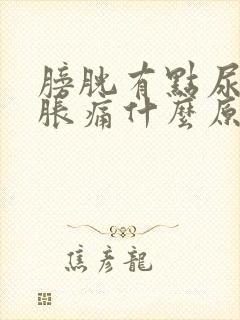 膀胱有點尿
脹痛什麼原
焦彥龍